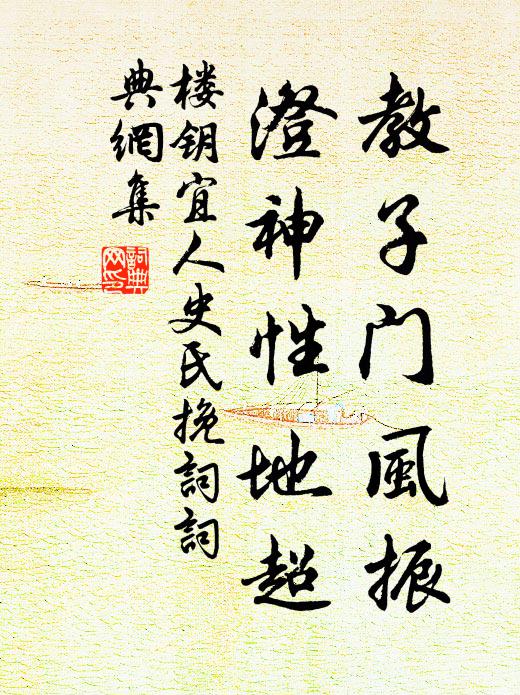 教子门風振
澄神性地超
楼钥宜人史氏挽詞詞
典網集
詞典
网印